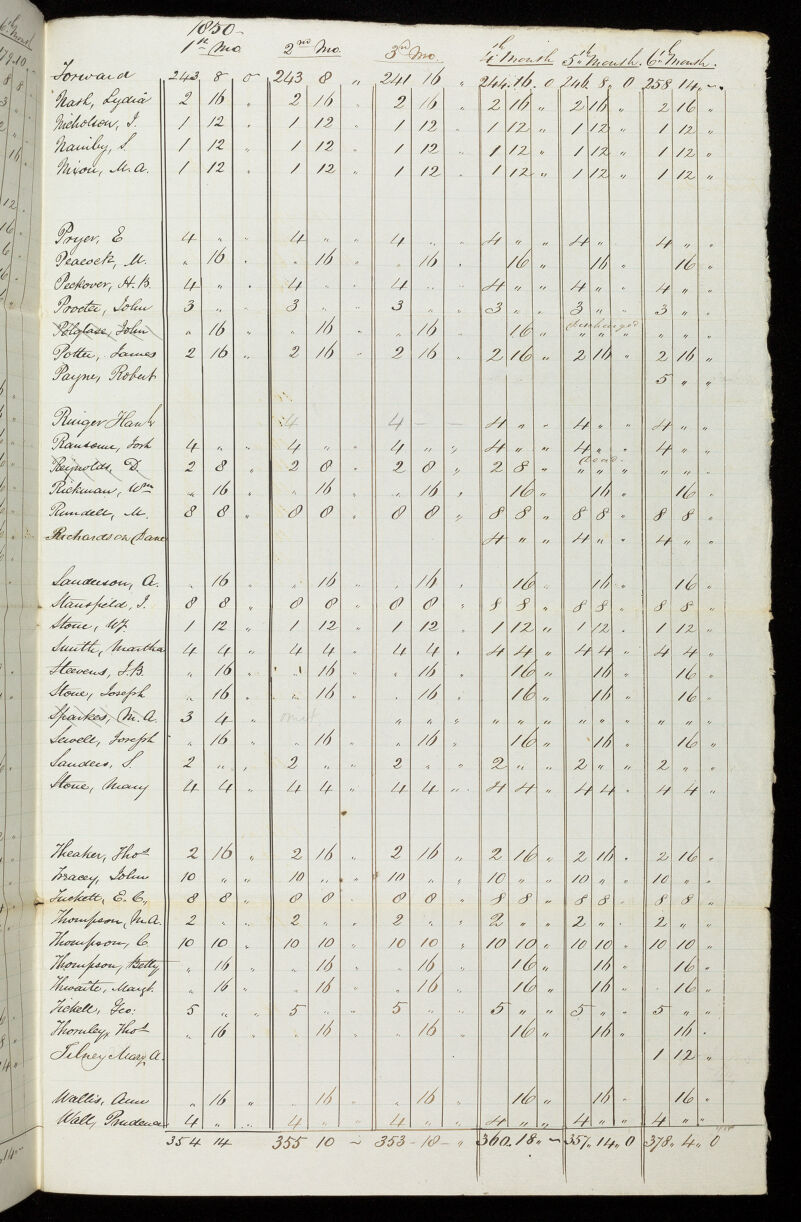 1850
1st Mo 2nd Mo. 3rd Mo. 4th Month 5th Month. 6th Month.
Forward 243 8 0 243 8 „ 241 16 „ 244. 16. 0 246. 8 „ 0 258 14 „ ~
Nash, Lydia 2 16 „ 2 16 „ 2 16 „ 2 16 „ 2 16 „ 2 16 „
Nicholson, J. 1 12 „ 1 12 „ 1 12 „ 1 12 „ 1 12 „ 1 12 „
Namby, S. 1 12 „ 1 12 „ 1 12 „ 1 12 „ 1 12 „ 1 12 „
Nixon, M. A. 1 12 „ 1 12 „ 1 12 „ 1 12 „ 1 12 „ 1 12 „
Pryer, E 4 „ „ 4 „ „ 4 „ „ 4 „ „ 4 „ 4 „ „
Peacock, M. „ 16 „ „ 16 „ „ 16 „ 16 „ 16 „ 16 „
Peckover, H. B. 4 „ „ 4 „ „ 4 „ „ 4 „ „ 4 „ „ 4 „ „
Procter, John 3 „ „ 3 „ „ 3 „ „ 3 „ „ 3 „ „ 3 „ „
Pelglase, John „ 16 „ „ 16 „ „ 16 „ 16 „ discharged „ „ „ „ „ „
Potter, James 2 16 „ 2 16 „ 2 16 „ 2 16 „ 2 16 „ 2 16 „
Payne, Robert 5 „ „
Ringer Hanh 4 4 – – 4 „ „ 4 „ „ 4 „ „
Ransome, Josh 4 „ „ 4 „ „ 4 „ „ 4 „ „ 4 „ „ 4 „ „
Reynolds, D. 2 8 „ 2 8 „ 2 8 „ 2 8 „ dead „ „ „ „ „ „
Rickman, Wm „ 16 „ „ 16 „ „ 16 „ 16 „ 16 „ 16 „
Rundell, M. 8 8 „ 8 8 „ 8 8 „ 8 8 „ 8 8 „ 8 8 „
Richardson Jane 4 „ „ 4 „ „ 4 „ „
Sanderson, A. „ 16 „ „ 16 „ „ 16 „ 16 „ 16 „ 16 „
Stansfield, J. 8 8 „ 8 8 „ 8 8 „ 8 8 „ 8 8 „ 8 8 „
Stone, Wf 1 12 „ 1 12 „ 1 12 „ 1 12 „ 1 12 „ 1 12 „
Smith, Martha 4 4 „ 4 4 „ 4 4 „ 4 4 „ 4 4 „ 4 4 „
Steevens, J. B. „ 16 „ „ 16 „ „ 16 „ 16 „ 16 „ 16 „
Stone, Joseph „ 16 „ „ 16 „ „ 16 „ 16 „ 16 „ 16 „
Sparkes, M. A. 3 4 „ omit „ „ „ „ „ „ „ „ „ „ „ „
Sewell, Joseph „ 16 „ „ 16 „ „ 16 „ 16 „ 16 „ 16 „
Sanders, S. 2 „ „ 2 „ „ 2 „ „ 2 „ „ 2 „ „ 2 „ „
Stone, Mary 4 4 „ 4 4 „ 4 4 „ 4 4 „ 4 4 „ 4 4 „
Theaker, Thos 2 16 „ 2 16 „ 2 16 „ 2 16 „ 2 16 „ 2 16 „
Tracey, John 10 „ „ 10 „ „ 10 „ „ 10 „ „ 10 „ „ 10 „ „
Tuckett, E. C. 8 8 „ 8 8 „ 8 8 „ 8 8 „ 8 8 „ 8 8 „
Thompson, M. A. 2 „ „ 2 „ „ 2 „ „ 2 „ „ 2 „ „ 2 „ „
Thompson, C 10 10 „ 10 10 „ 10 10 „ 10 10 „ 10 10 „ 10 10 „
Thompson, Betty „ 16 „ „ 16 „ „ 16 „ 16 „ 16 „ 16 „
Thwaite, Margt. „ 16 „ „ 16 „ „ 16 „ 16 „ 16 „ 16 „
Tickell, Geo: 5 „ „ 5 „ „ 5 „ „ 5 „ „ 5 „ „ 5 „ „
Thornley, Thos „ 16 „ „ 16 „ „ 16 „ 16 „ 16 „ 16 „
Tilney Mary A. 1 12 „
Wallis, Ann „ 16 „ „ 16 „ „ 16 „ 16 „ 16 „ 16 „
Wall, Prudence 4 „ „ 4 „ „ 4 „ „ 4 „ „ 4 „ „ 4 „ „
354 14 355 10 ~ 353 – 18 – „ 360. 18 „ ~ 357 „ 14 „ 0 378 „ 4 „ 0